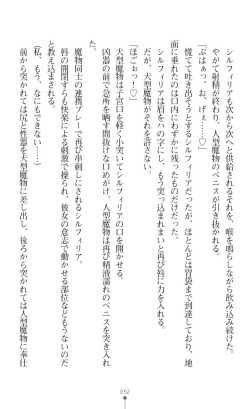 シルフィリアも次から次へと供給されるそれを、喉を鳴らしながら飲み続けた。
やがて射精が終わり、人型魔物のペニスが引き抜かれる。
「ぶはぁっ、お、げぇ……♡」
慌てて吐き出そうとするシルフィリアだったが、ほとんどは胃袋まで到達しており、地
面に垂れたのは口内にわずかに残ったものだけだった。
シルフィリアは肩をハの字にし、もう突っ込まれまいと再び唇に力を入れる。
だが、犬型魔物がそれを許さない。
「ほごぉっ…♡」
犬型魔物は子宮口を軽く小突いてシルフィリアの口を開かせる。
凶器の前で急所を晒す間抜けな口めがけ、人型魔物は再び精液濡れのペニスを突き入れ
た。
魔物同士の連携プレーで再び串刺しにされるシルフィリア。
唇の開閉すらも快楽による刺激で操られ、彼女の意志で動かせる部位などもうないのだ
と教え込まれる。
（私、もう、なにもできない……）
前から突かれては尻と性器を犬型魔物に差し出し、後ろから突かれては人型魔物に奉仕
052